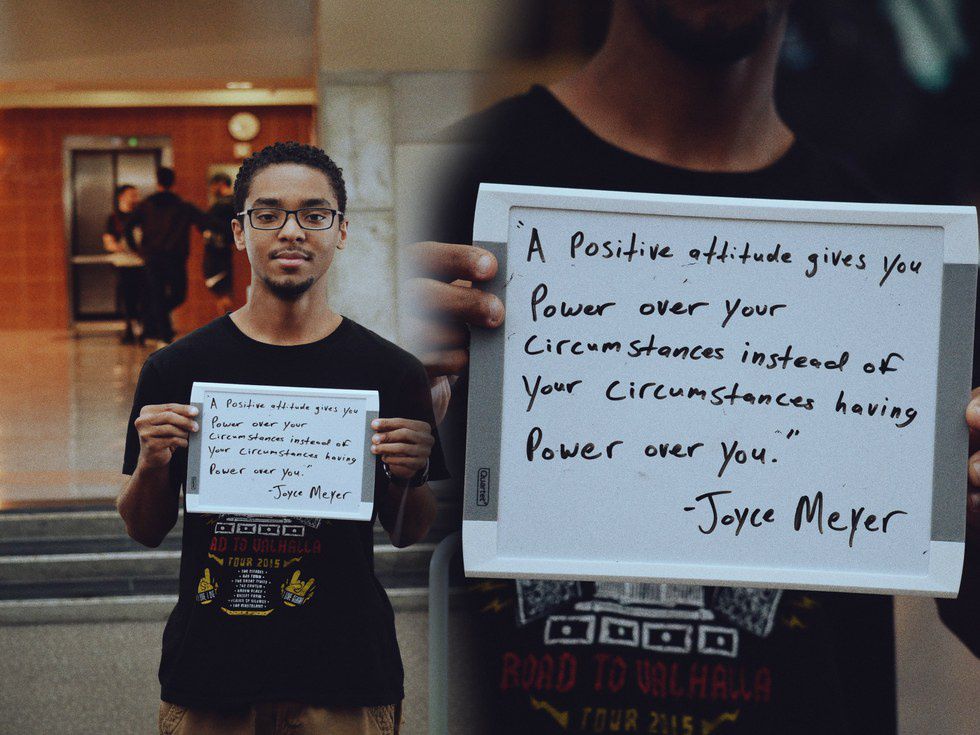 "A Positive attitude gives you
Power over your
Circumstances instead of
your circumstances having
Power over you."
-Joyce Meyer
AD TO VALHALLA
TOUR 2015
"A Positive attitude gives you
Power over your
Circumstances instead of
your circumstances having
Power over you."
-Joyce Meyer
Quartet
ROAD TO VALHALLA
TOUR 2015